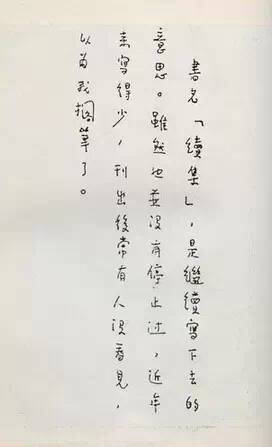 書名「續集」，是繼續寫下去的
意思。雖然也並沒有停止過，近年
來寫得少，刊出後常有人没看見，
以為我擱筆了。